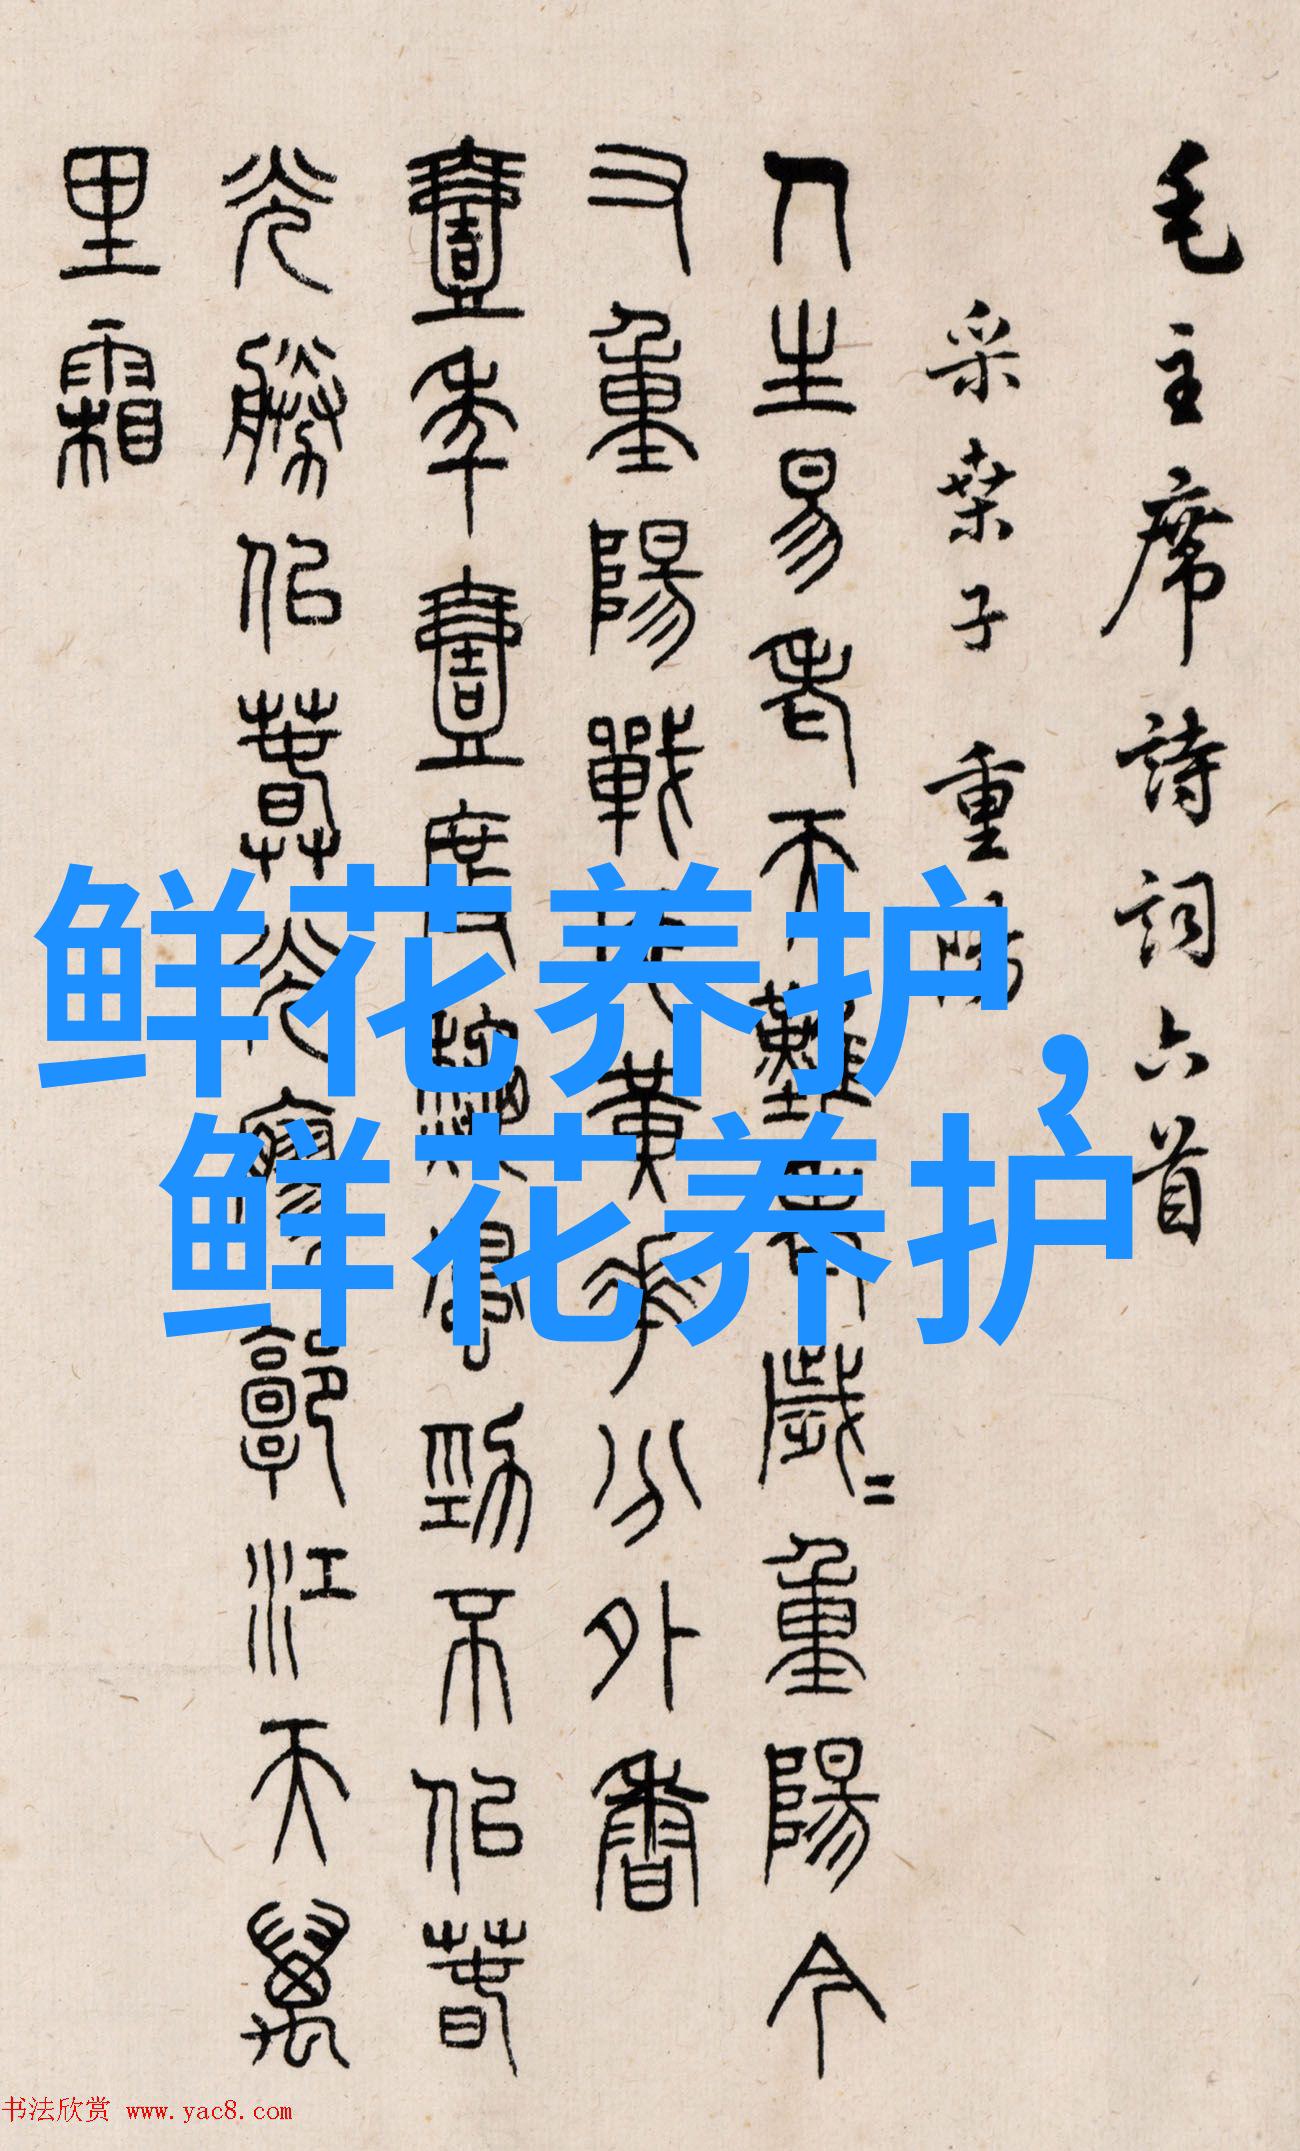 毛主席詩詞六首
采桑子 重陽
人生易老天難老歲=重陽今
又重陽戰地黃花分外香
壹年壹度秋風勁不佀春
光勝佀春光寥郭江天萬
里霜
鲜花养护，
鲜花养护
书法欣赏 www.yac8.com